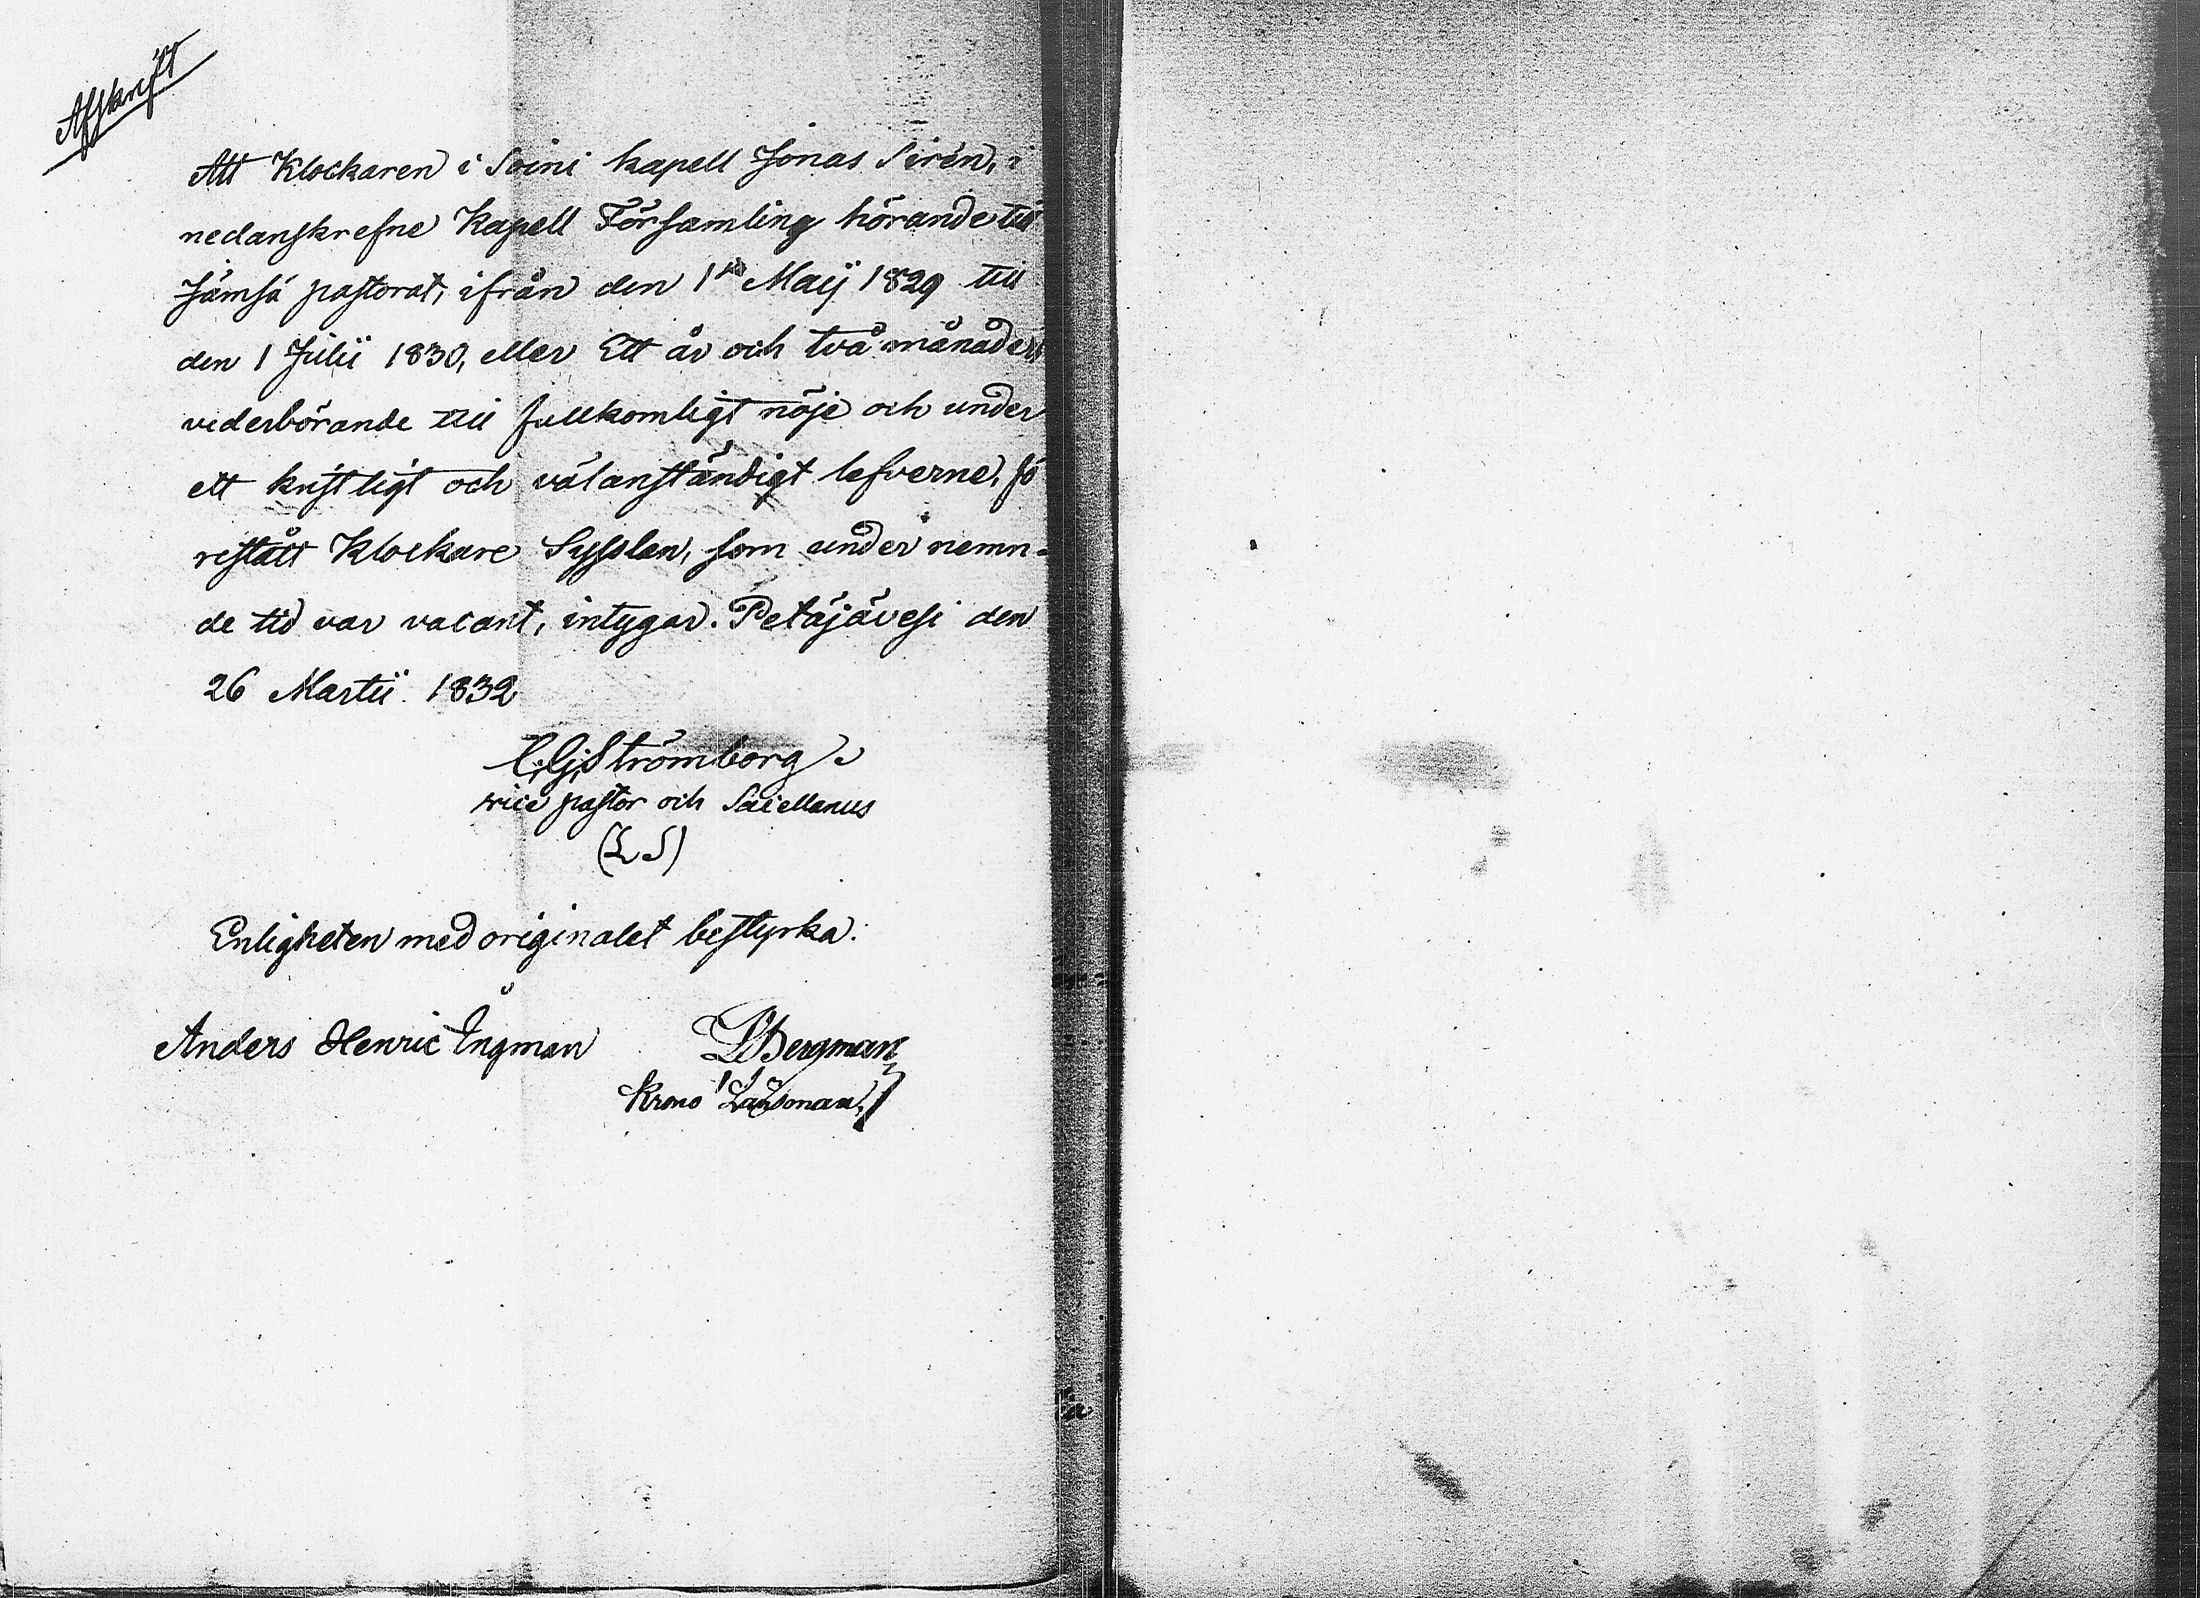 Afskrift
Att Klockaren i Soini kapell Jonas Sirén, i
nedanskrefne Kapell Församling hörande till
Jämsä pastorat, ifrån den 1 Maij 1829 till
den 1 Julii 1830, eller Ett år och två månader
vederbörande till fullkomligt nöje och under
ett kristligt och välanständigt lefverne, fö
restått Klockare Sysslan, som under nemn-
de tid var vacant, intygar. Petäjävesi den
26 Martii 1832
C. G. Strömborg
vice pastor och Sacellanus
(L S)
Enligheten med originalet bestyrka:
Anders Henric Ingman
Bergman
Krono Länsman